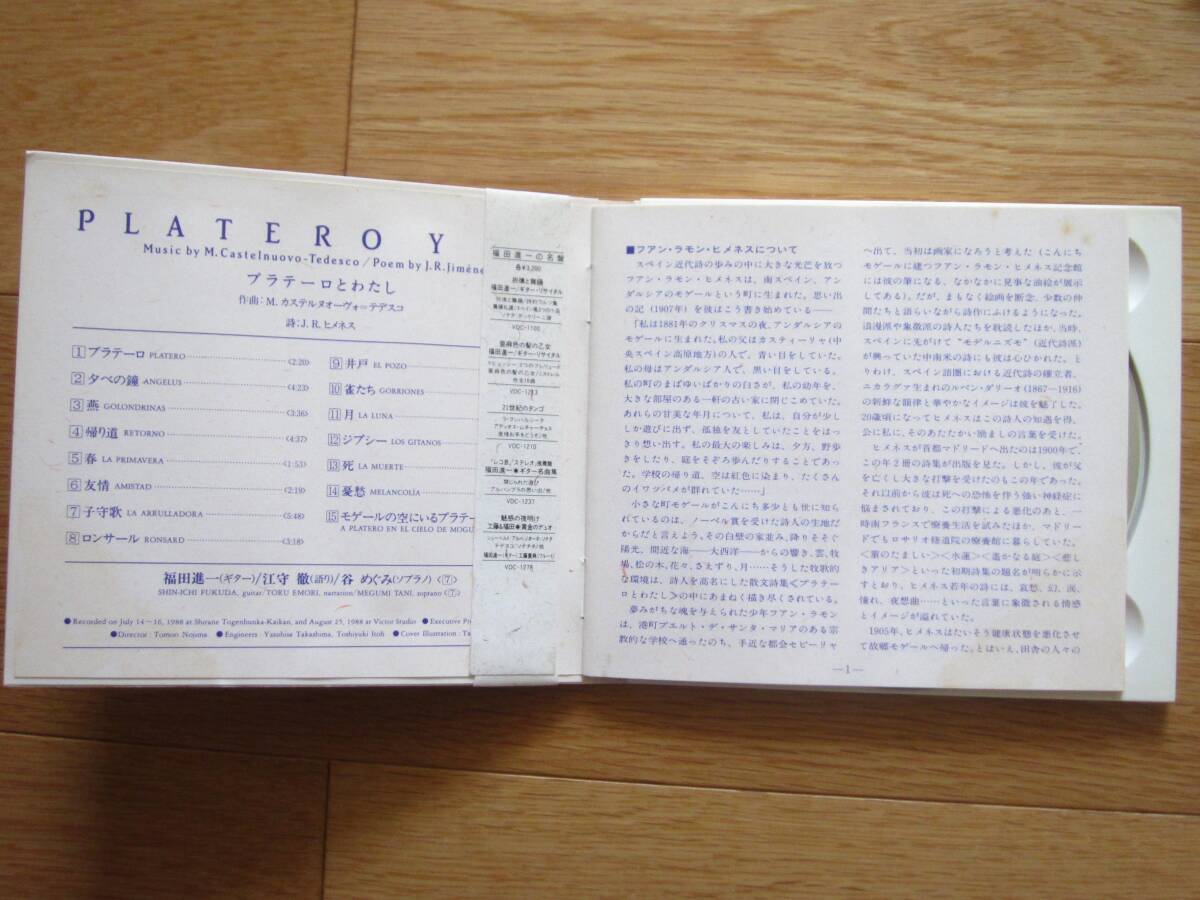 PLATERO Y
Music by M.Castelnuovo-Tedesco/Poem by J.R.Jiméne
プラテーロとわたし
作曲：M. カステルヌオーヴォーテデスコ
詩：J. R. ヒメネス
1 プラテーロ PLATERO ‹2:20›
2 夕べの鐘 ANGELUS ‹4:23›
3 燕 GOLONDRINAS ‹3:36›
4 帰り道 RETORNO ‹4:37›
5 春 LA PRIMAVERA ‹1:53›
6 友情 AMISTAD ‹2:19›
7 子守歌 LA ARRULLADORA ‹5:48›
8 ロンサール RONSARD ‹3:18›
9 井戸 EL POZO
10 雀たち GORRIONES
11 月 LA LUNA
12 ジプシー LOS GITANOS
13 死 LA MUERTE
14 憂愁 MELANCOLÍA
15 モゲールの空にいるプラテー
A PLATERO EN EL CIELO DE MOGU
福田進一(ギター)/江守 徹(語り)/谷 めぐみ(ソプラノ)〈⑦〉
SHIN-ICHI FUKUDA, guitar/TORU EMORI, narration/MEGUMI TANI, soprano〈⑦〉
●Recorded on July 14〜16, 1988 at Shirane Togenbunka-Kaikan, and August 25, 1988 at Victor Studio ●Executive Pro
●Director : Tomoo Nojima ●Engineers : Yasuhisa Takashima, Toshiyuki Itoh ●Cover Illustration : Ta
福田進一の名盤
各¥3,200
祈禱と舞踊
福田進一/ギター・リサイタル
VDC-1100
亜麻色の髪の乙女
福田進一/ギター・リサイタル
VDC-1213
21世紀のタンゴ
VDC-1215
「レコ芸」「ステレオ」推薦盤
福田進一●ギター名曲集
禁じられた遊び
アルハンブラの思い出/他
VDC-1237
魅惑の夜明け
工藤&福田●黄金のデュオ
VDC-1278
■フアン・ラモン・ヒメネスについて
スペイン近代詩の歩みの中に大きな光芒を放つ
フアン・ラモン・ヒメネスは、南スペイン、アン
ダルシアのモゲールという町に生まれた。思い出
の記（1907年）を彼はこう書き始めている——
「私は1881年のクリスマスの夜、アンダルシアの
モゲールに生まれた。私の父はカスティーリャ（中
央スペイン高原地方）の人で、青い目をしていた。
私の母はアンダルシア人で、黒い目をしている。
私の町のまばゆいばかりの白さが、私の幼年を、
大きな部屋のある一軒の古い家に閉じこめていた。
あれらの甘美な年月について、私は、自分が少し
しか遊びに出ず、孤独を友としていたことをはっ
きり想い出す。私の最大の楽しみは、夕方、野歩
きをしたり、庭をそぞろ歩んだりすることであっ
た。学校の帰り道、空は紅色に染まり、たくさん
のイワツバメが群れていた……」
小さな町モゲールがこんにち多少とも世に知ら
れているのは、ノーベル賞を受けた詩人の生地だ
からだと言えよう。その白壁の家並み、降りそそぐ
陽光、間近な海——大西洋——からの響き、雲、牧
場、松の木、花々、さえずり、月……そうした牧歌的
な環境は、詩人を高名にした散文詩集≪プラテー
ロとわたし≫の中にあまねく描き尽くされている。
夢みがちな魂を与えられた少年フアン・ラモン
は、港町プエルト・デ・サンタ・マリアのある宗
教的な学校へ通ったのち、手近な都会セビーリャ
へ出て、当初は画家になろうと考えた（こんにち
モゲールに建つフアン・ラモン・ヒメネス記念館
には彼の筆になる、なかなかに見事な油絵が展示
してある）。だが、まもなく絵画を断念、少数の仲
間たちと語らいながら詩作にふけるようになった。
浪漫派や象徴派の詩人たちを耽読したほか、当時、
スペインに先がけて“モデルニズモ”（近代詩派）
が興っていた中南米の詩にも彼は心ひかれた。と
りわけ、スペイン語圏における近代詩の確立者、
ニカラグァ生まれのルベン・ダリーオ(1867—1916)
の新鮮な韻律と華やかなイメージは彼を魅了した。
20歳頃になってヒメネスはこの詩人の知遇を得、
公に私に、そのあたたかい励ましの言葉を受けた。
ヒメネスが首都マドリードへ出たのは1900年で、
この年2冊の詩集が出版を見た。しかし、彼が父
を亡くし大きな打撃を受けたのもこの年であった。
それ以前から彼は死への恐怖を伴う強い神経症に
悩まされており、この打撃による悪化のあと、一
時南フランスで療養生活を試みたほか、マドリー
ドでもロサリオ修道院の療養館に暮らしていた。
＜菫のたましい＞＜水蓮＞＜遥かなる庭＞＜悲し
きアリア＞といった初期詩集の題名が明らかに示
すとおり、ヒメネス若年の詩には、哀愁、幻、涙、
憧れ、夜想曲……といった言葉に象徴される情感
とイメージが溢れていた。
1905年、ヒメネスはたいそう健康状態を悪化させ
て故郷モゲールへ帰った。とはいえ、田舎の人々の
—1—